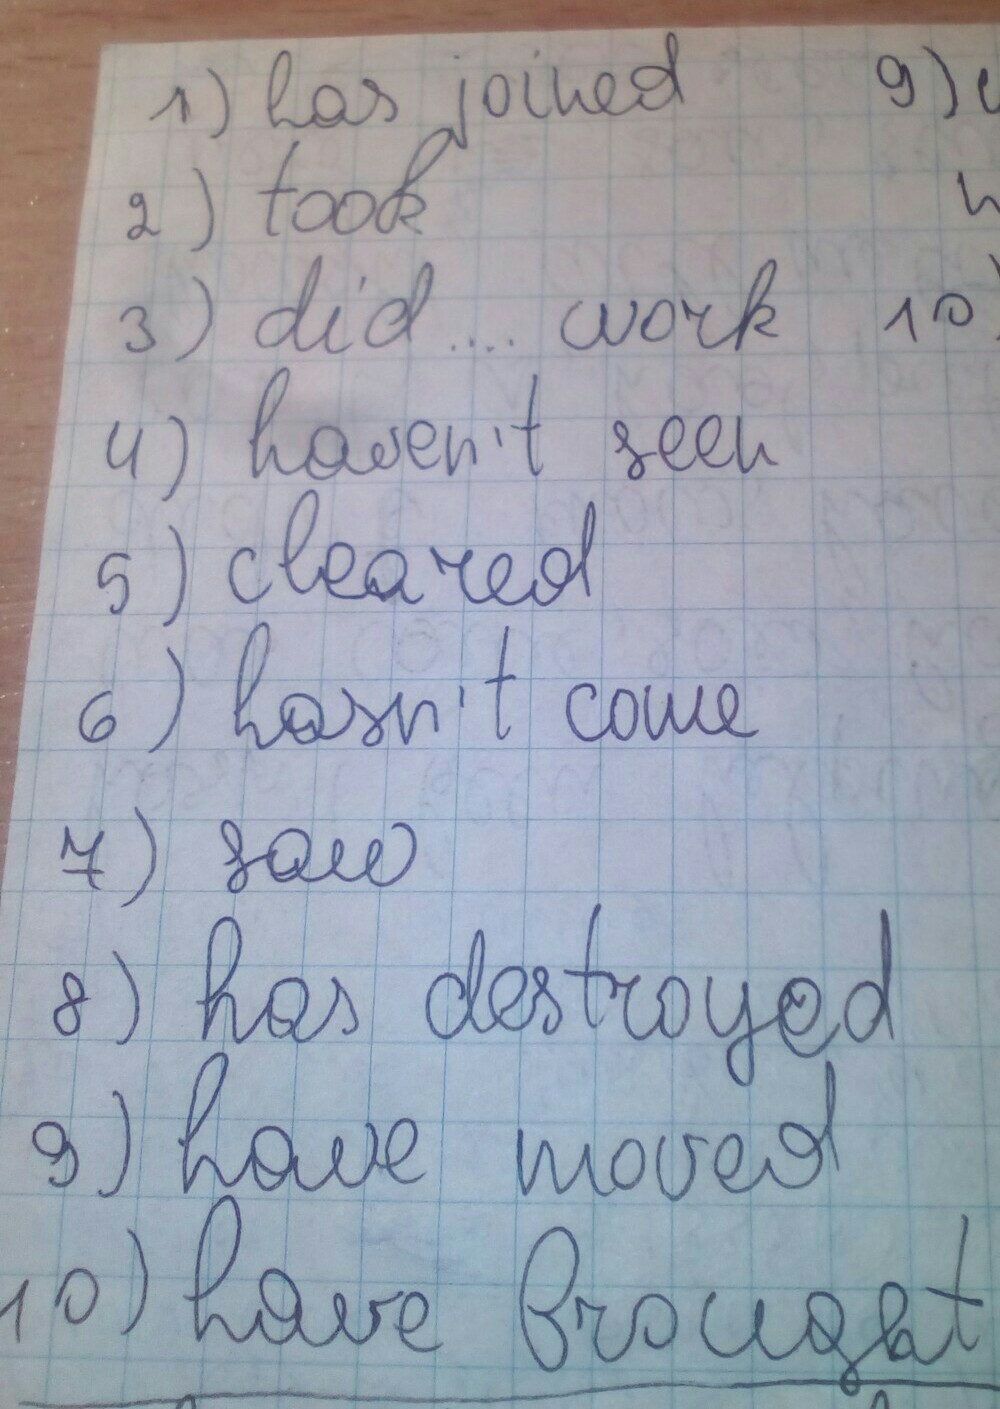 1) has joined
2) took
3) did .... work
4) haven't seen
5) cleared
6) hasn't come
7) saw
8) has destroyed
9) have moved
10) have brought
9)
10)